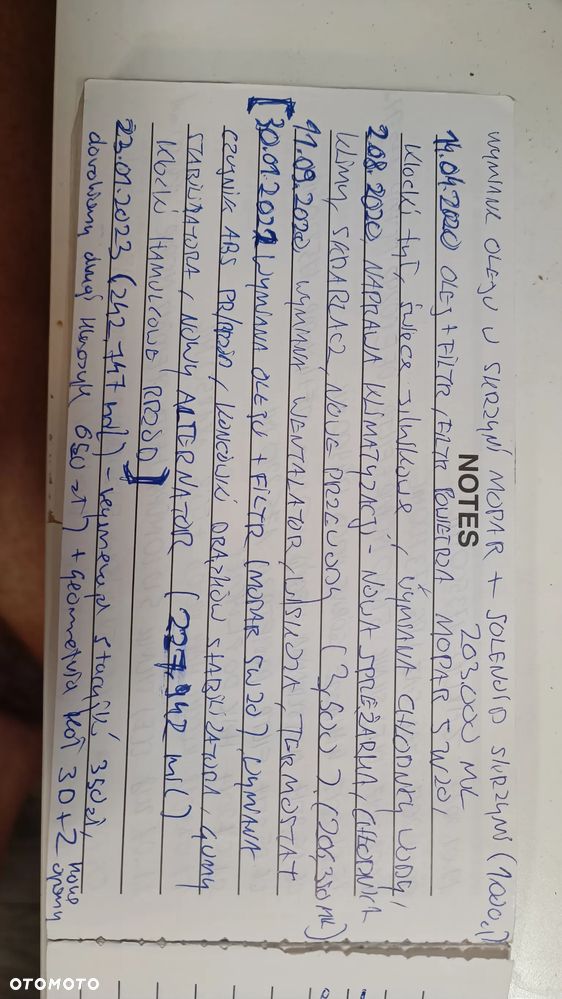 NOTES
WYMIANA OLEJU W SKRZYNI MOPAR + SOLENOID SKRZYNI (1000zł)
203.000 ML
14.04.2020 OLEJ + FILTR, FILTR POWIETRA MOPAR 5W20,
Klocki tył, świece silnikowe, WYMIANA CHŁODNICY WODY,
2.08.2020, NAPRAWA KLIMATYZACJI - NOWA SPRĘŻARKA, CHŁODNICA
KLIMY, SKRAPLACZ, NOWE PRZEWODY (3,500) (205,350 ML)
11.09.2020 WYMIANA WENTALATOR, WISKOZA, TERMOSTAT
[30.01.2021 WYMIANA OLEJU + FILTR (MOPAR 5W20) WYMIANA
CZUJNIK ABS PR/PRZÓD, KOŃCÓWKI DRĄŻKÓW STABILIZATORA, GUMY
STABILIZATORA, NOWY ALTERNATOR (227,942 ML)
Klocki HAMULCOWE (PRZÓD)]
22.01.2023 (242,747 ML) - regeneracja stacyjki 350 zł,
dorobiony drugi kluczyk 650 zł) + geometria kół 3D + 2 nowe
opony
OTOMOTO